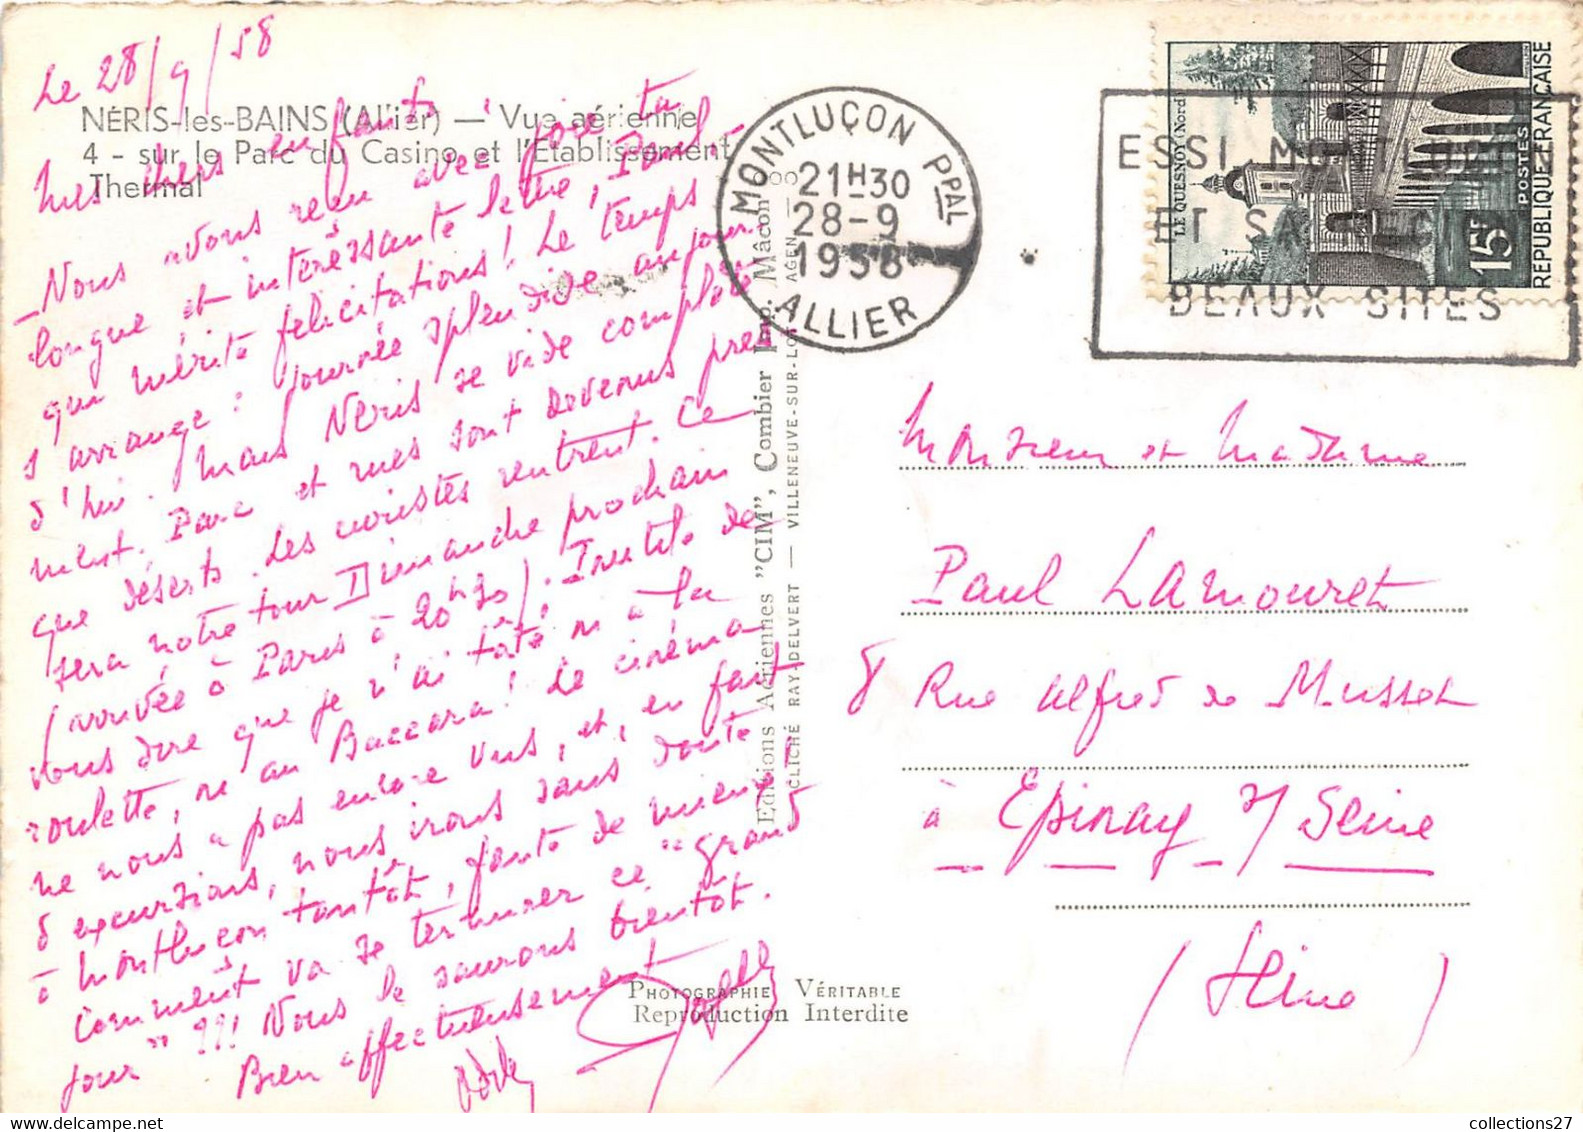 Le 28/9/58
NÉRIS-les-BAINS (Allier) — Vue aérienne
4 - sur le Parc du Casino et l'Etablissement
Thermal
Mes chers enfants
Nous avons reçu avec joie ta
longue et intéressante lettre, Paul
qui mérite félicitations! Le temps
s'arrange : journée splendide aujour-
d'hui. Mais Néris se vide complète-
ment. Parc et rues sont devenus pres-
que déserts. Les curistes rentrent. Ce
sera notre tour Dimanche prochain
(arrivée à Paris à 20h30). Inutile de
vous dire que je n'ai tâté ni à la
roulette, ni au Baccara! Le cinéma
ne nous a pas encore vus, et, en fait
d'excursions, nous irons sans doute
à Montluçon tantôt, faute de mieux!
Comment va se terminer ce "grand
jour" ??! Nous le saurons bientôt.
Bien affectueusement
Editions Aériennes "CIM", Combier Imp. Mâcon
CLICHÉ RAY-DELVERT — VILLENEUVE-SUR-LOT — AGEN
PHOTOGRAPHIE VÉRITABLE
Reproduction Interdite
MONTLUÇON PPAL
21H30
28-9
1958
ALLIER
ET SA
BEAUX SITES
LE QUESNOY (Nord)
15F
POSTES
REPUBLIQUE FRANÇAISE
Monsieur et Madame
Paul LAMOURET
8 Rue Alfred de Musset
à Epinay s/ Seine
(Seine)
collections27